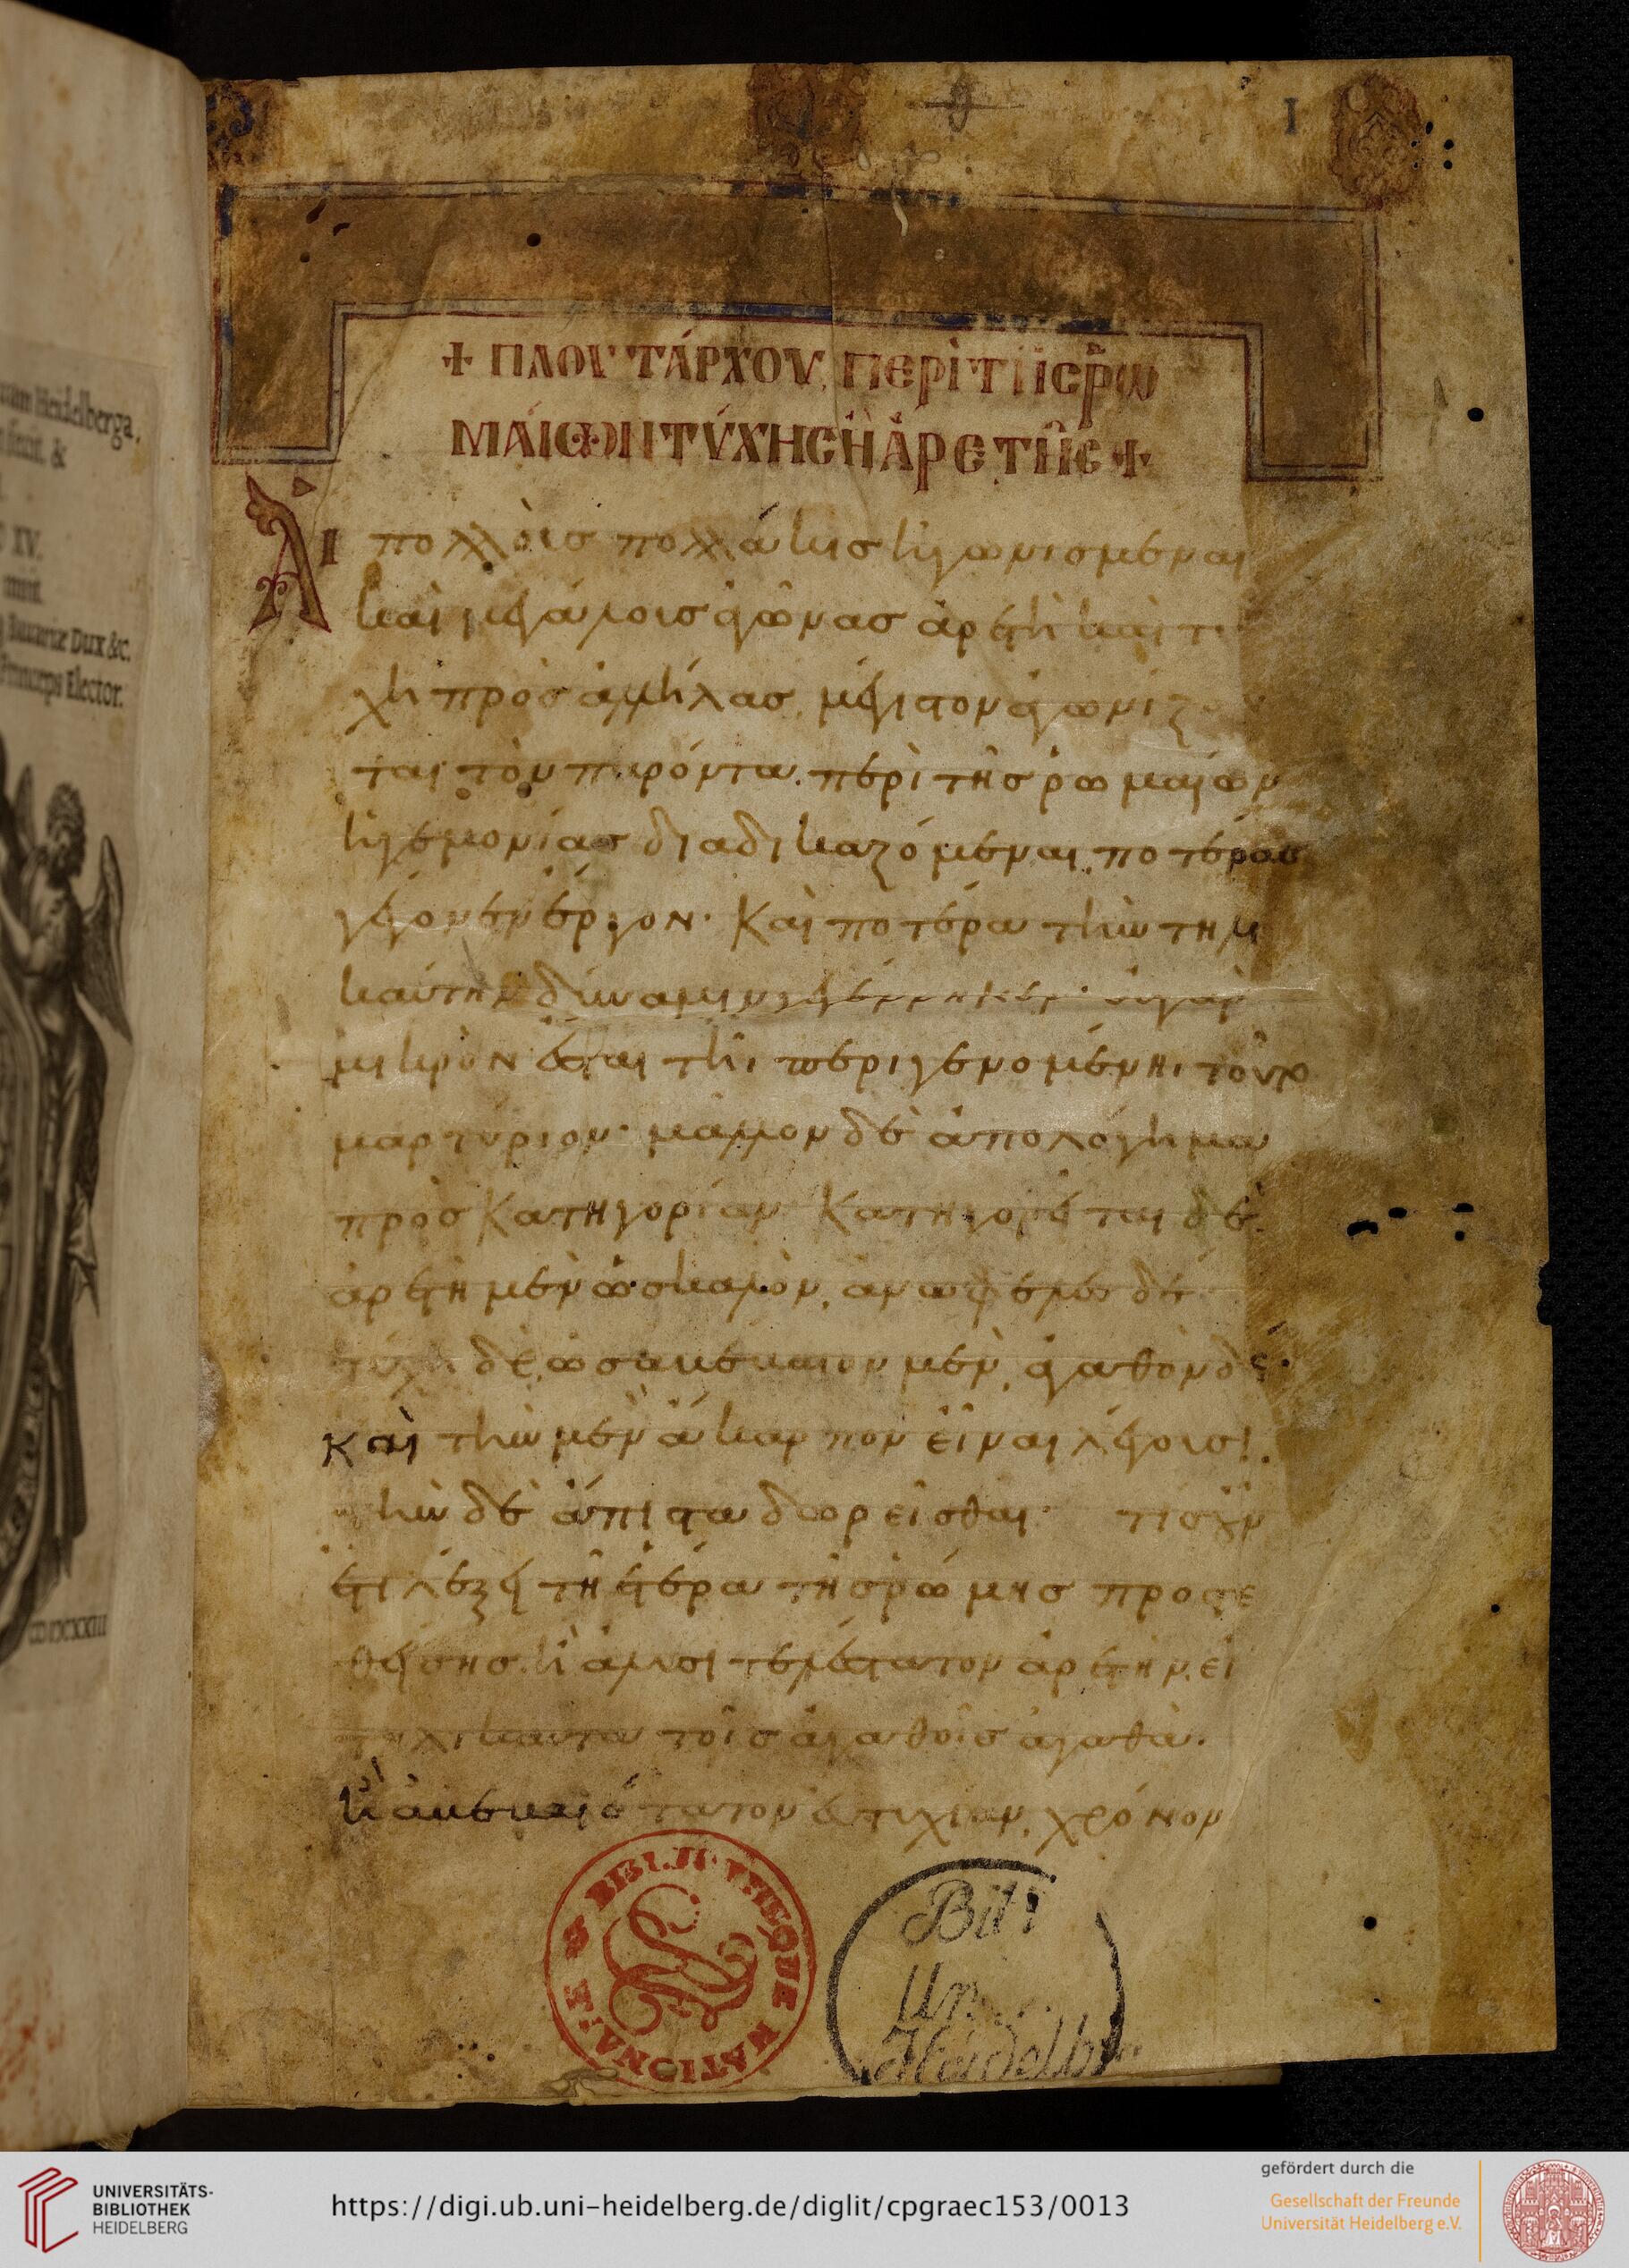 um Heidelberga,
fecit, &
XV.
Bavariæ Dux &c.
Princeps Elector.
I
+ ΠΛΟΥΤΆΡΧΟΥ, ΠΕΡῚ ΤΗ͂Σ ῬΩ
ΜΑΊΩΝ ΤΎΧΗΣ Ἢ ἈΡΕΤΗ͂Σ +
Αἱ πολλοῖς πολλάκις ἠγωνισμέναι
καὶ μεγάλοις ἀγῶνας ἀρετὴ καὶ τύ
χη πρὸς ἀλλήλας, μέγιστον ἀγωνίζον
ται τὸν παρόντα. περὶ τῆς ῥωμαίων
ἡγεμονίας διαδικαζόμεναι, ποτέρας
γέγονεν ἔργον. καὶ ποτέρα τὴν τηλι
καύτην δύναμιν γεγέννηκεν. οὐ γὰρ
μικρὸν ἔσται τῆι περιγενομένηι τοῦτο
μαρτύριον. μᾶλλον δὲ ἀπολόγημα
πρὸς κατηγορίαν. κατηγορεῖται δὲ
ἀρετὴ μὲν ὡς καλὸν, ἀνωφελὲς δὲ
τύχη δὲ, ὡς ἀβέβαιον μὲν, ἀγαθὸν δέ.
καὶ τὴν μὲν ἄκαρπον εἶναι λέγουσι.
τὴν δὲ ἄπιστα δωρεῖσθαι. τίς οὐχὶ
θήσης. ἢ λυσιτελέστατον ἀρετὴν. εἰ
τηλικαῦτα τοῖς ἀγαθοῖς ἀγαθὰ.
ἢ βεβαιότατον εὐτυχίαν, χρόνον
BIBLIOTHEQUE NATIONALE
Bibl
Un
Heidelb
UNIVERSITÄTS-
BIBLIOTHEK
HEIDELBERG
https://digi.ub.uni-heidelberg.de/diglit/cpgraec153/0013
gefördert durch die
Gesellschaft der Freunde
Universität Heidelberg e.V.